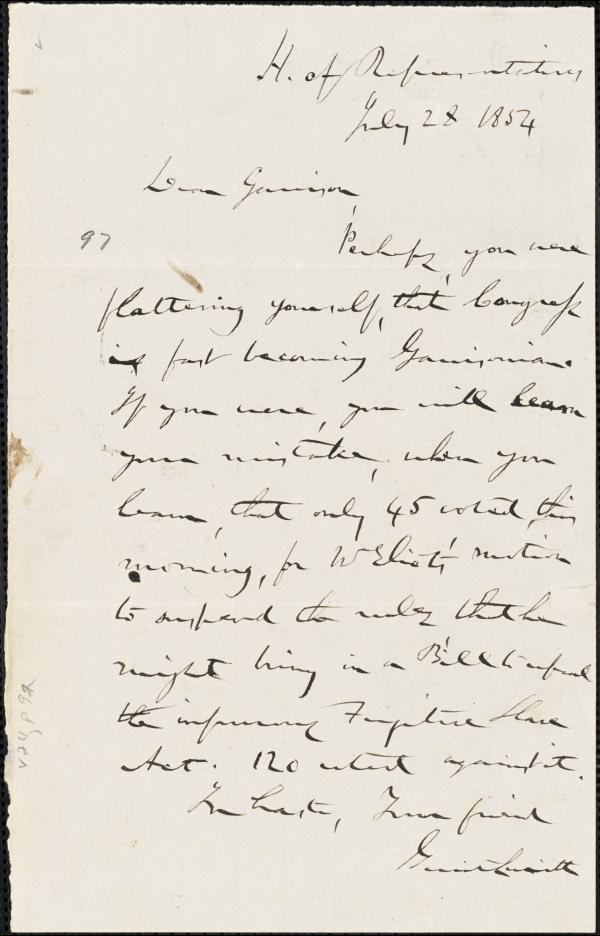 H. of Representatives
July 28 1854
Dear Garrison,
97
Perhaps, you were
flattering yourself, that Congress
is fast becoming Garrisonian.
If you were, you will learn
your mistake, when you
learn, that only 45 voted, this
morning, for Mr Eliot's motion
to suspend the rules that he
might bring in a Bill to repeal
the infamous Fugitive Slave
Act. 120 voted against it.
In haste, Your friend
Gerrit Smith